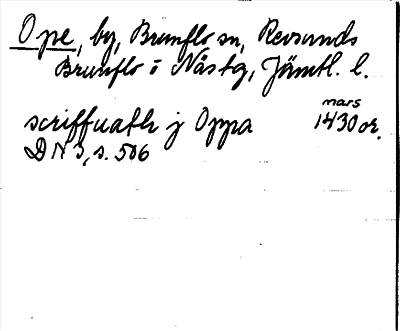 Ope, by, Brunflo sn, Revsunds
Brunflo o Näs tg, Jämtl. l.
mars
scriffuath j Oppa 1430 or.
DN 3, s. 506